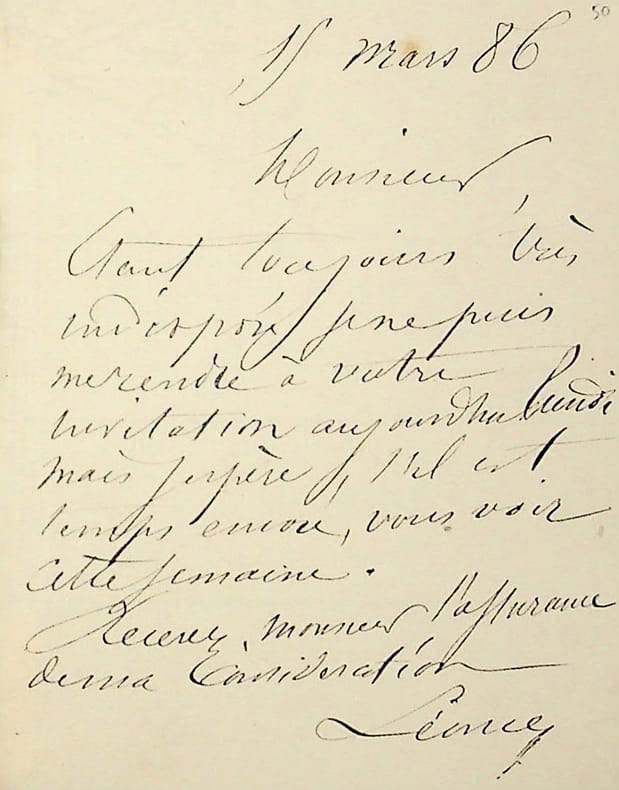 50
15 mars 86
Monsieur,
Etant toujours très
indisposé je ne puis
me rendre à votre
invitation aujourdhui lundi
mais j'espère, s'il est
temps encore, vous voir
cette semaine.
Recevez, monsieur l'assurance
de ma Considération
Léonce